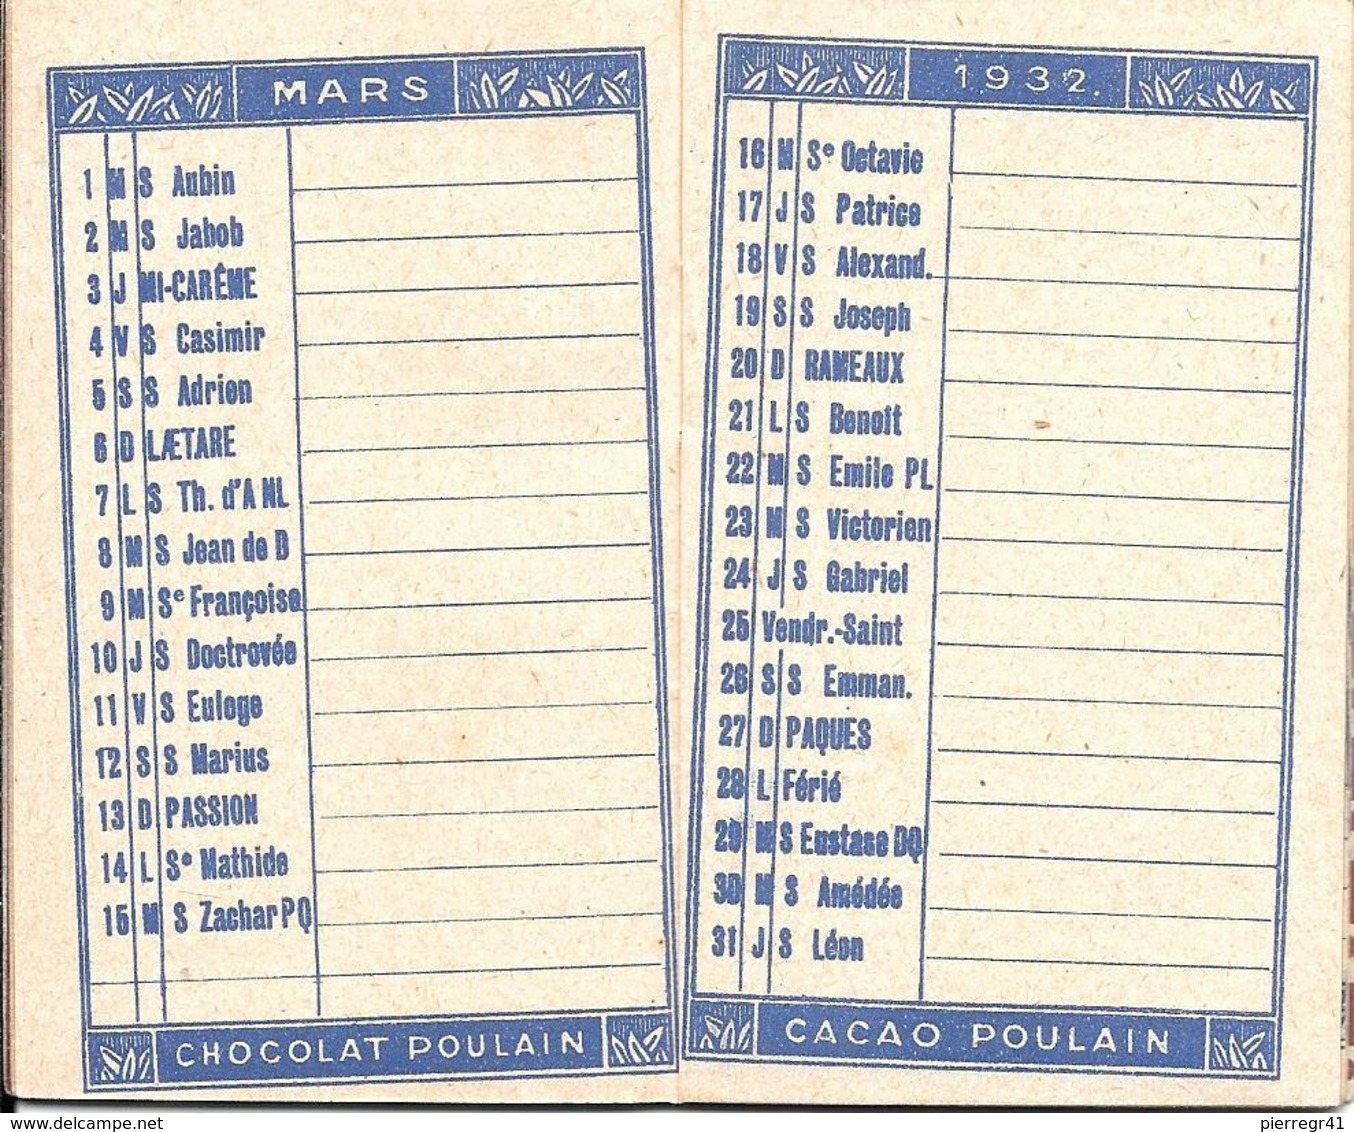 MARS
1 M S Aubin
2 M S Jahob
3 J MI-CARÊME
4 V S Casimir
5 S S Adrien
6 D LÆTARE
7 L S Th. d'A NL
8 M S Jean de D
9 M Sᵉ Françoise
10 J S Doctrovée
11 V S Euloge
12 S S Marius
13 D PASSION
14 L Sᵉ Mathide
15 M S Zachar PQ
CHOCOLAT POULAIN
1932.
16 M Sᵉ Octavie
17 J S Patrice
18 V S Alexand.
19 S S Joseph
20 D RAMEAUX
21 L S Benoît
22 M S Emile PL
23 M S Victorien
24 J S Gabriel
25 Vendr.-Saint
26 S S Emman.
27 D PAQUES
28 L Férié
29 M S Eustase DQ
30 M S Amédée
31 J S Léon
CACAO POULAIN
pierregr41